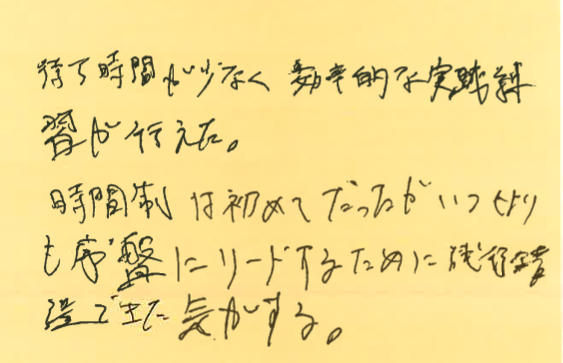 待ち時間が少なく効率的な実践練
習が行えた。
時間制は初めてだったがいつもより
も序盤にリードするために
できた気がする。